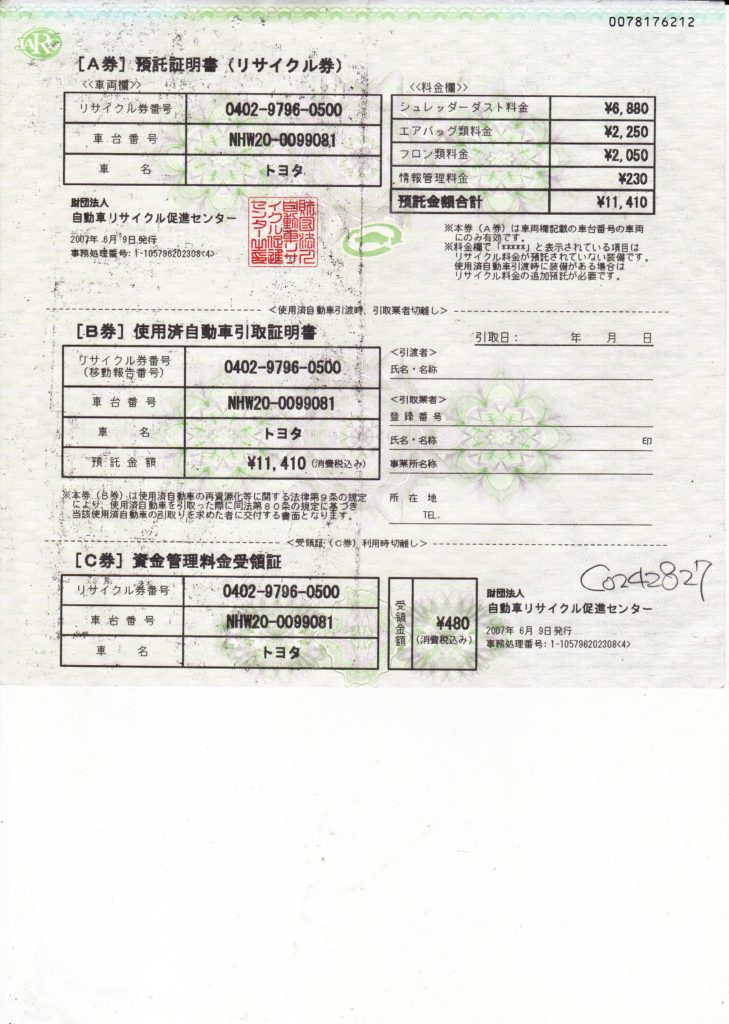 0078176212
JARC
[A券] 預託証明書 (リサイクル券)
<<車両欄>>
リサイクル券番号 0402-9796-0500
車台番号 NHW20-0099081
車名 トヨタ
<<料金欄>>
シュレッダーダスト料金 ¥6,880
エアバッグ類料金 ¥2,250
フロン類料金 ¥2,050
情報管理料金 ¥230
預託金額合計 ¥11,410
財団法人
自動車リサイクル促進センター
2007年 6月 9日発行
事務処理番号: 1-105796202308<4>
財団法人
自動車リサ
イクル促進
センター
※本券 (A券) は車両欄記載の車台番号の車両
にのみ有効です。
※料金欄で「*****」と表示されている項目は
リサイクル料金が預託されていない装備です。
使用済自動車引渡時に装備がある場合は
リサイクル料金の追加預託が必要です。
<使用済自動車引渡時、引取業者切離し>
[B券] 使用済自動車引取証明書
リサイクル券番号
(移動報告番号) 0402-9796-0500
車台番号 NHW20-0099081
車名 トヨタ
預託金額 ¥11,410 (消費税込み)
※本券 (B券) は使用済自動車の再資源化等に関する法律第9条の規定
により、使用済自動車を引取った際に同法第80条の規定に基づき
当該使用済自動車の引取りを求めた者に交付する書面となります。
引取日: 年 月 日
<引渡者>
氏名・名称
<引取業者>
登録番号
氏名・名称 印
事業所名称
所在地
TEL.
<受領証 (C券) 利用時切離し>
[C券] 資金管理料金受領証
リサイクル券番号 0402-9796-0500
車台番号 NHW20-0099081
車名 トヨタ
受領金額 ¥480
(消費税込み)
C0242827
財団法人
自動車リサイクル促進センター
2007年 6月 9日発行
事務処理番号: 1-105796202308<4>